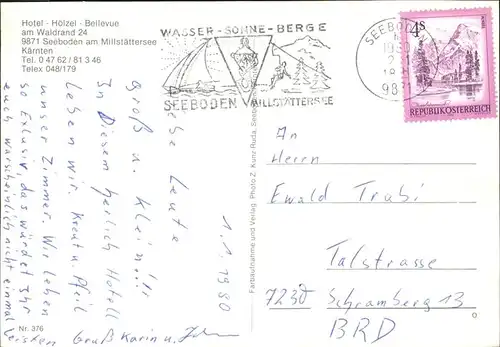 Hotel - Hölzel - Bellevue
am Waldrand 24
9871 Seeboden am Millstättersee
Kärnten
Tel. 0 47 62 / 81 3 46
Telex 048/179
WASSER - SONNE - BERGE
SEEBODEN MILLSTÄTTERSEE
SEEBODEN
1980
987
4S
REPUBLIK ÖSTERREICH
1.1.1980
Liebe Leute
Groß u. Klein!!
In diesem herlich Hotell
leben wir. Kreut u. Pfeil
unser Zimmer. Wir leben
so Exlusiv, das würdet Ihr
euch warscheinlich nicht einmal
leisten Gruß Karin u.
Nr. 376
Farbaufnahme und Verlag: Photo Z. Kunz-Ruda, Seeboden
An
Herrn
Ewald Trubi
Talstrasse
7230 Schramberg 13
BRD